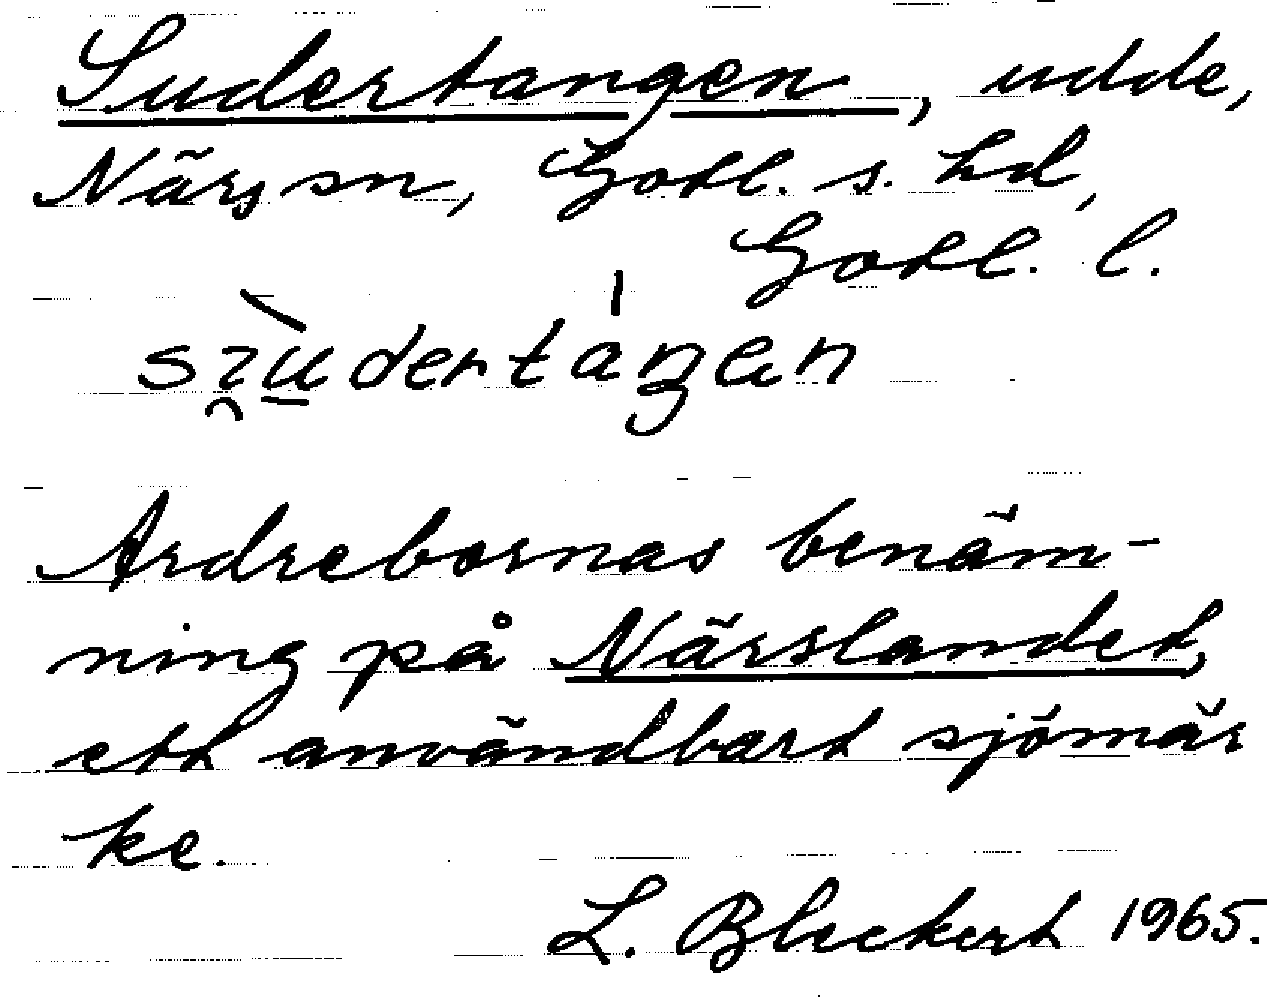 Sudertangen, udde,
Närs sn, Gotl. s. hd,
Gotl. l.
Ardrebornas benäm-
ning på Närslandet,
ett användbart sjömär
ke.
L. Bleckert 1965.